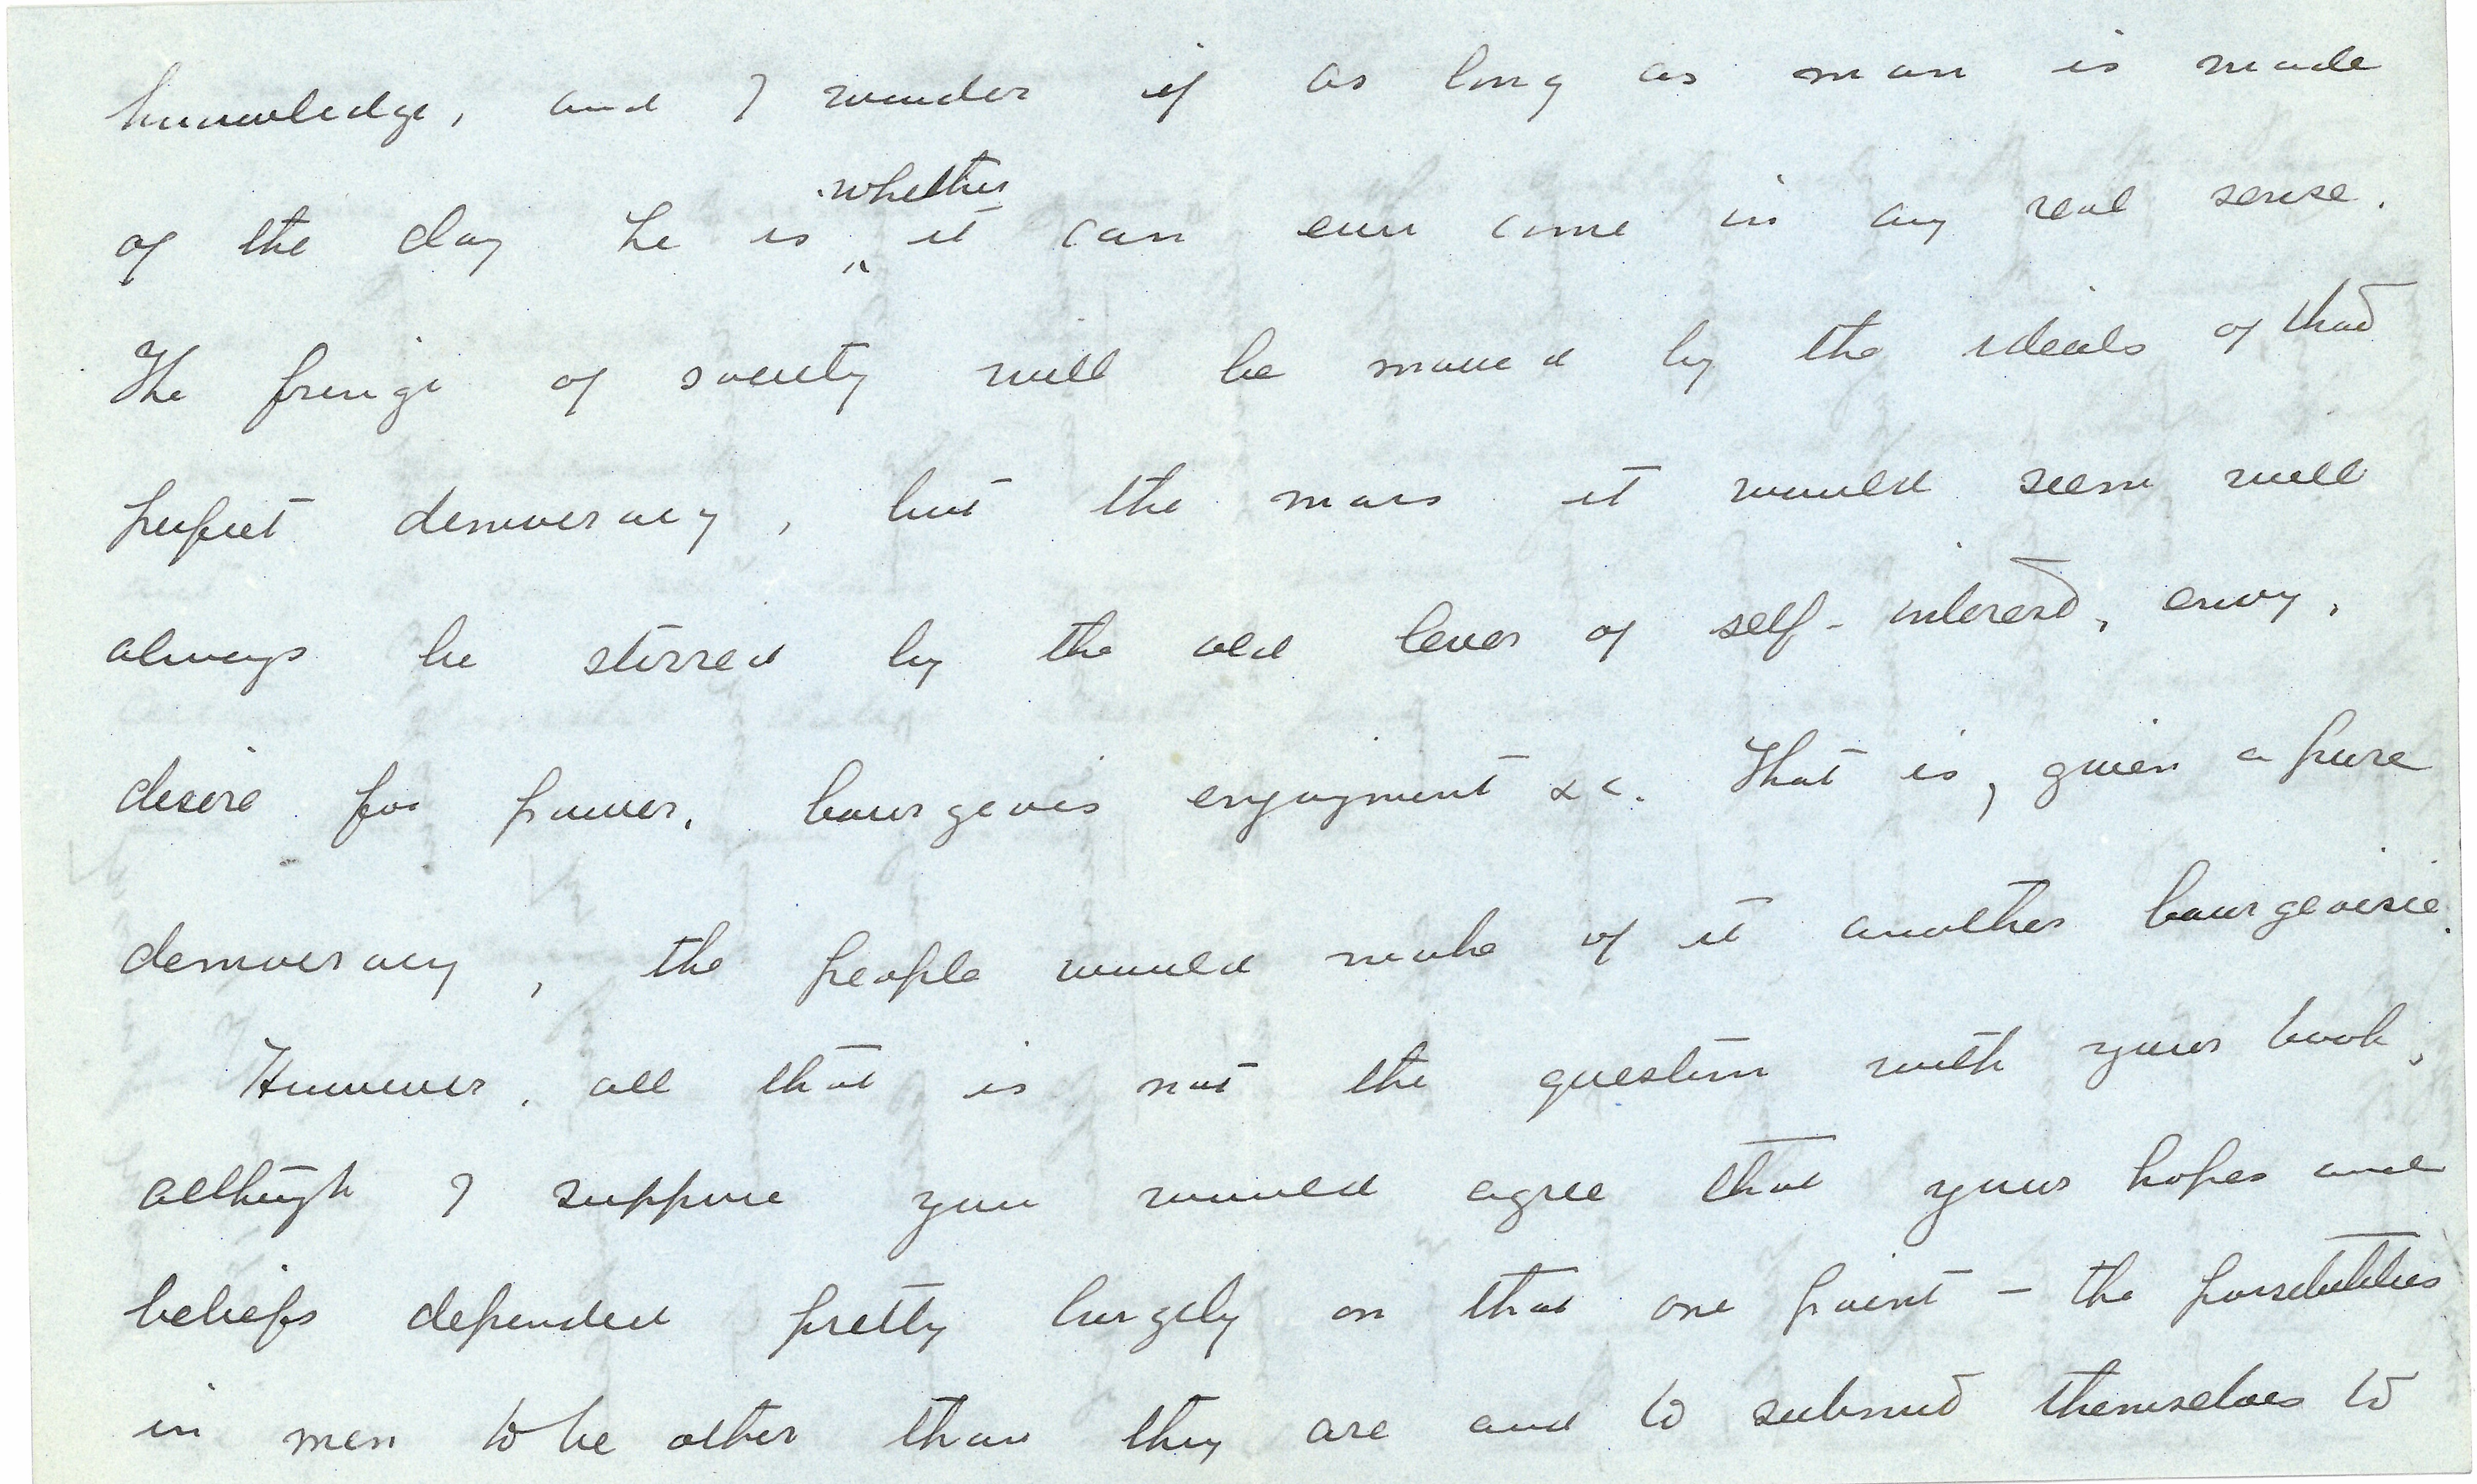 knowledge, and I wonder if as long as man is made
whether
of the day he is it can ever come in any real sense.
The fringe of society will be moved by the ideals of that
perfect democracy, but the mass it would seem will
always be stirred by the old lever of self-interest, envy,
desire for power, bourgeois enjoyment &c. That is, given a pure
democracy, the people would make of it another bourgeoisie.
However, all that is not the question with your book,
although I suppose you would agree that your hopes and
beliefs depended pretty largely on that one point - the possibilities
in men to be other than they are and to submit themselves to